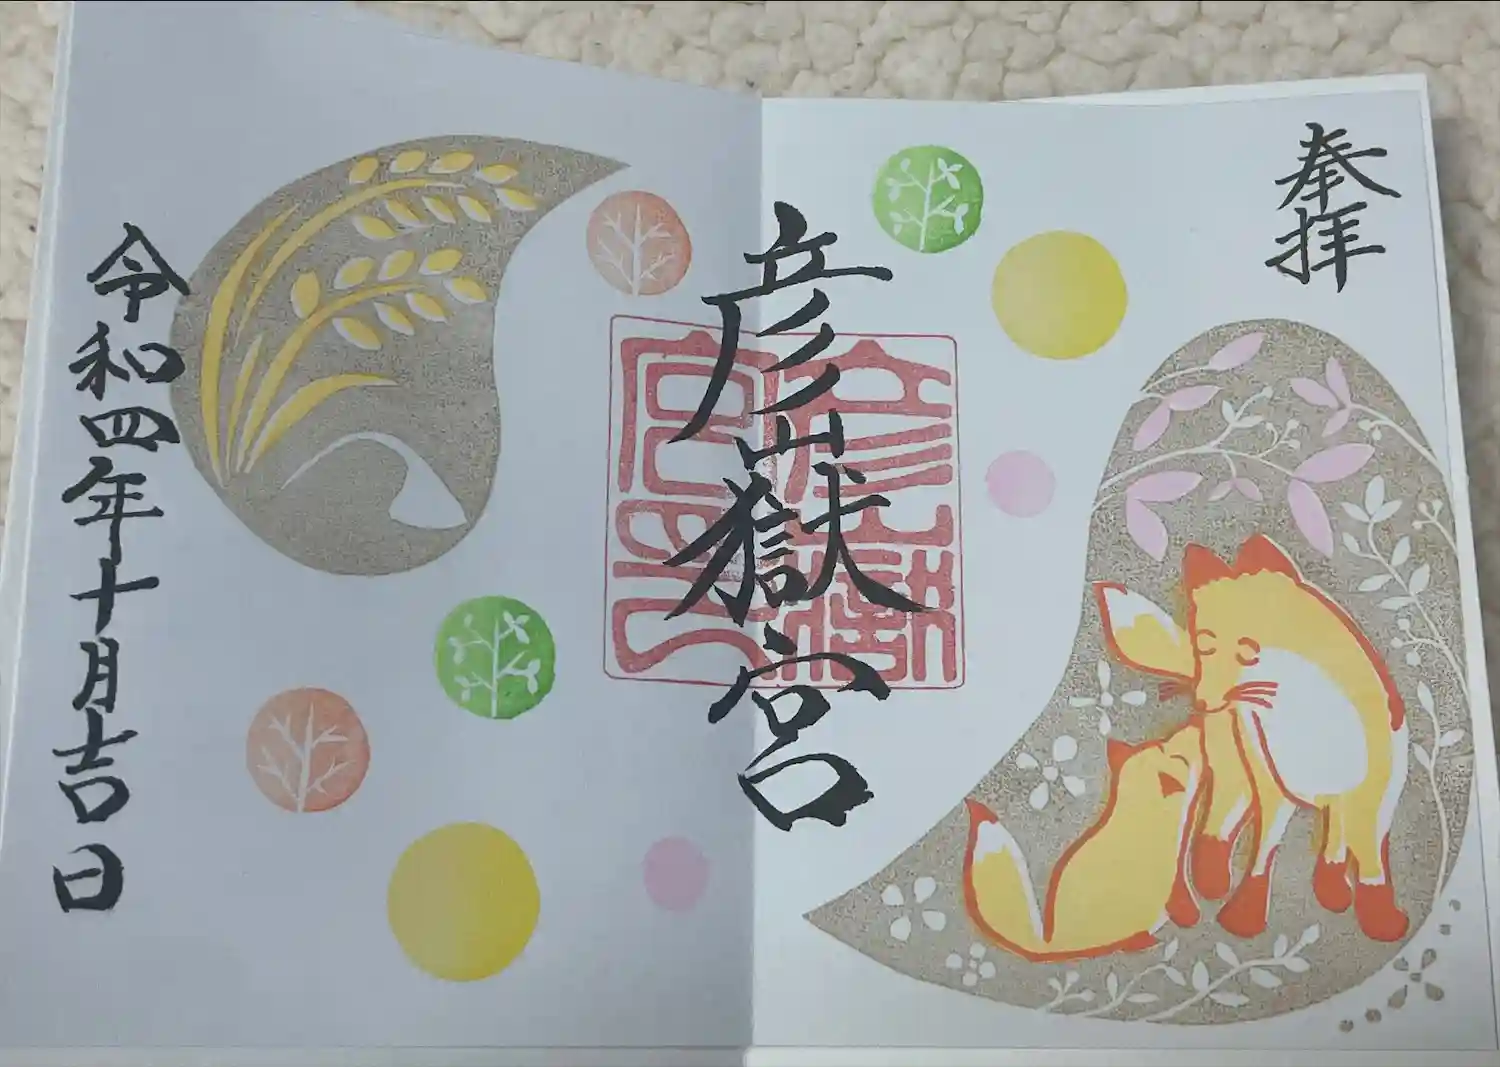 奉拝
彦嶽宮
彦嶽宮之印
令和四年十月吉日